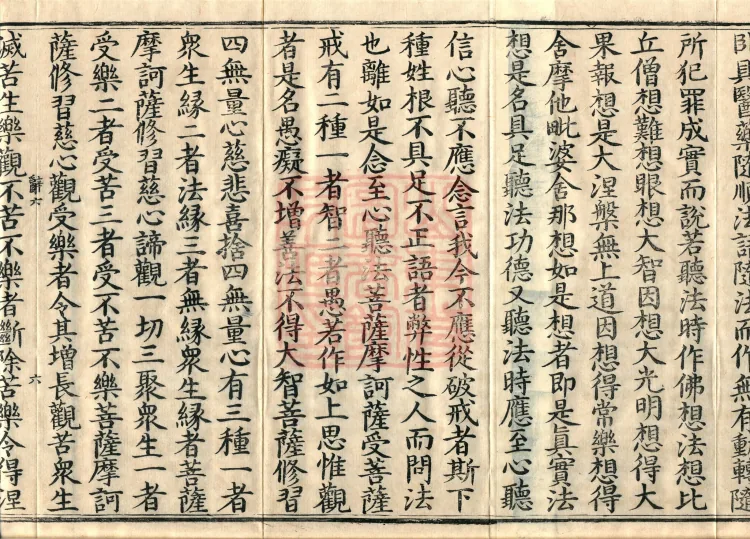 卧具醫藥隨順法語隨法而作無有動轉隨
所犯罪成實而說若聽法時作佛想法想比
丘僧想難想眼想大智因想大光明想得大
果報想是大涅槃無上道因想得常樂想得
舍摩他毗婆舍那想如是想者即是眞實法
想是名具足聽法功德又聽法時應至心聽
信心聽不應念言我今不應從破戒者斯下
種姓根不具足不正語者弊性之人而問法
也離如是念至心聽法菩薩摩訶薩受菩薩
戒有二種一者智二者愚若作如上思惟觀
者是名愚癡不增善法不得大智菩薩修習
四無量心慈悲喜捨四無量心有三種一者
衆生緣二者法緣三者無緣衆生緣者菩薩
摩訶薩修習慈心諦觀一切三聚衆生一者
受樂二者受苦三者受不苦不樂菩薩摩訶
薩修習慈心觀受樂者令其增長觀苦衆生
辭六 六
滅苦生樂觀不苦不樂者斷除苦樂令得涅